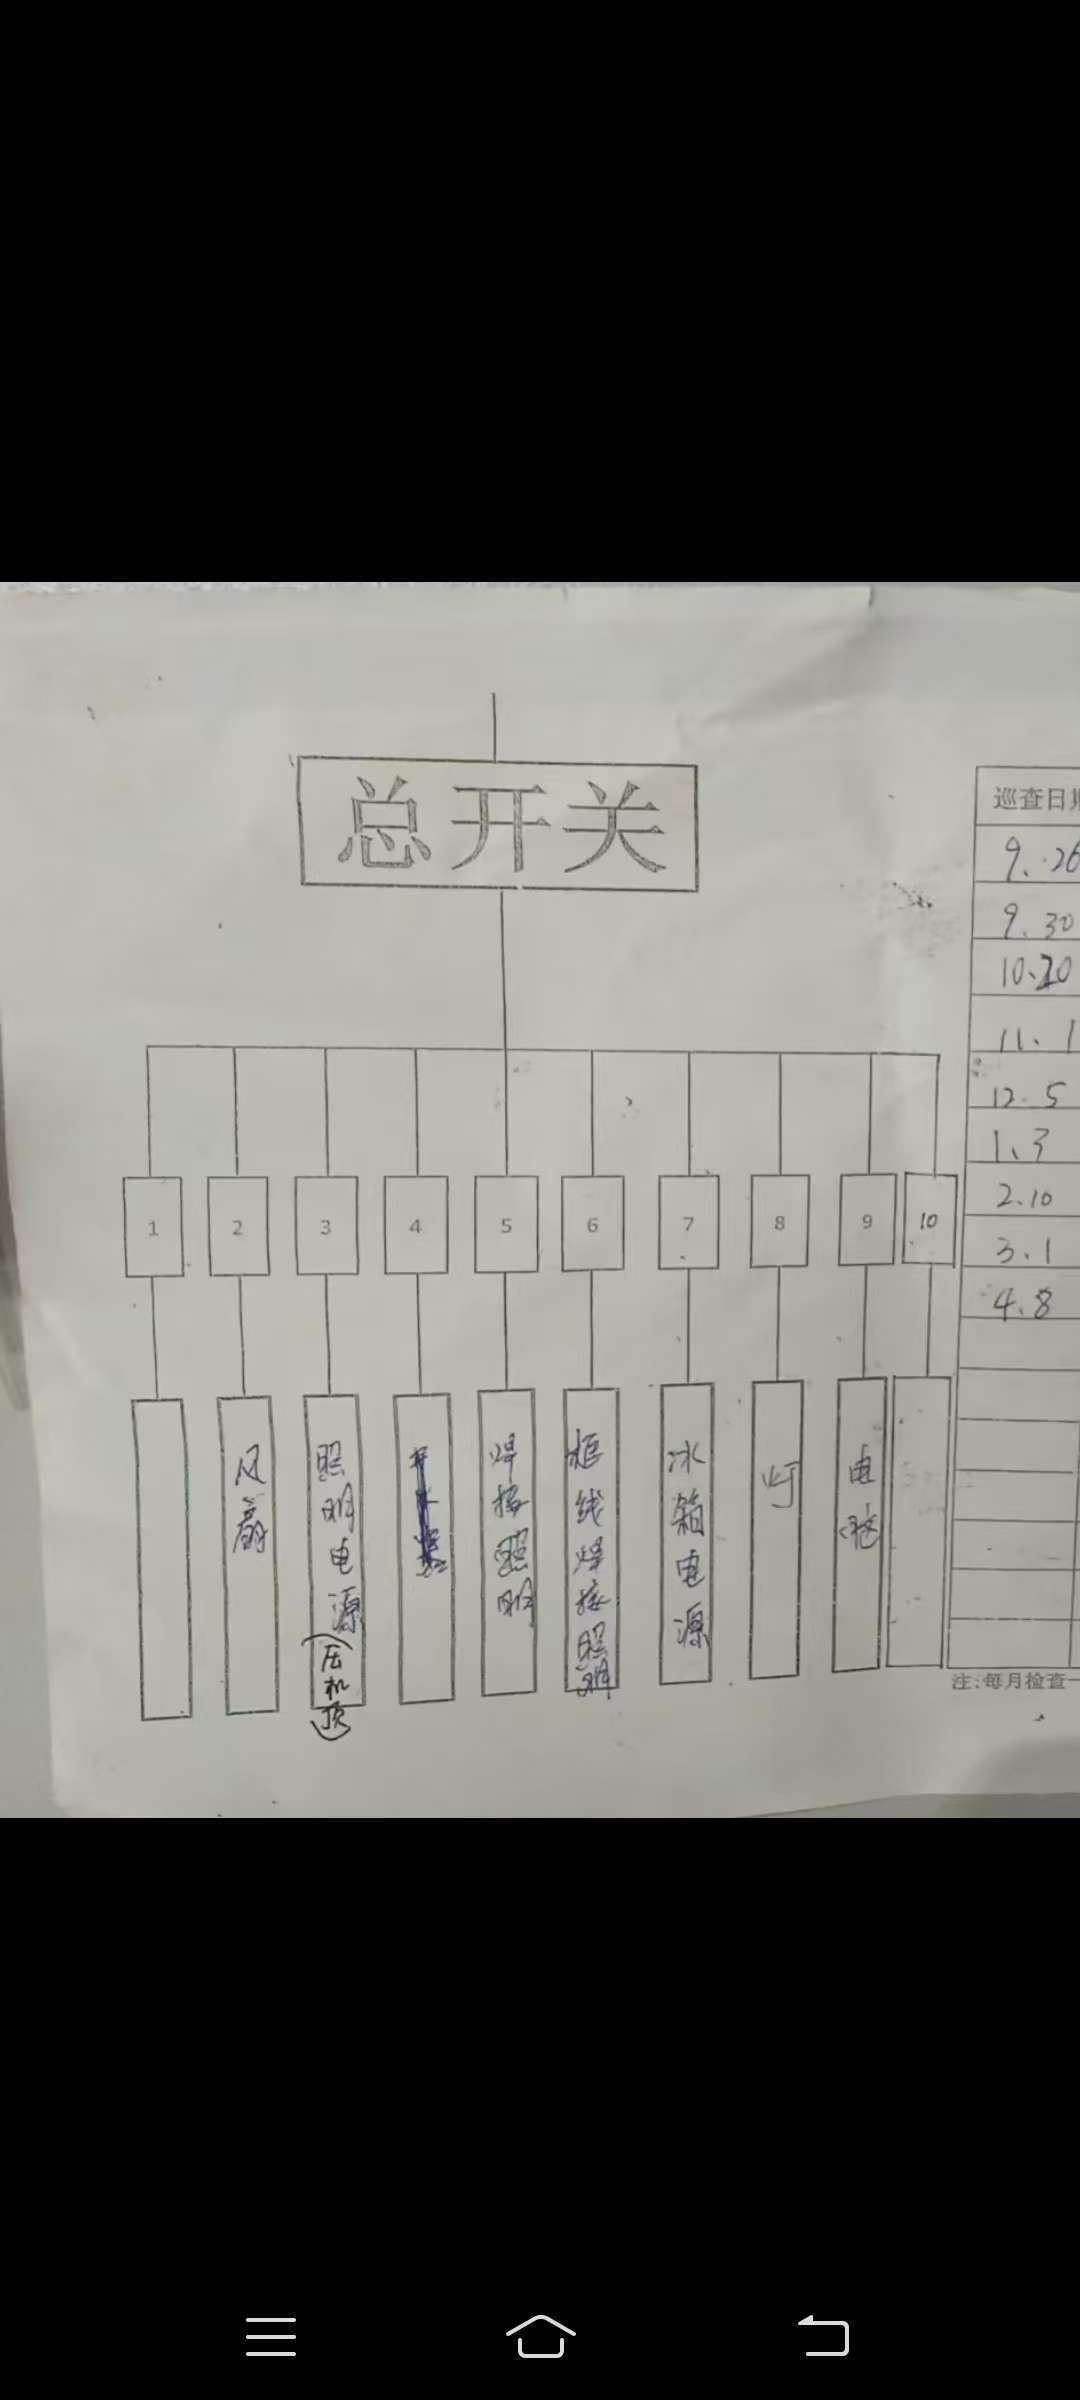 总开关
1 2 3 4 5 6 7 8 9 10
风扇
照明电源(压机顶)
焊接照明
柜线焊接照明
冰箱电源
灯
电磁
巡查日期
9.26
9.30
10.20
11.1
12.5
1.3
2.10
3.1
4.8
注:每月检查一